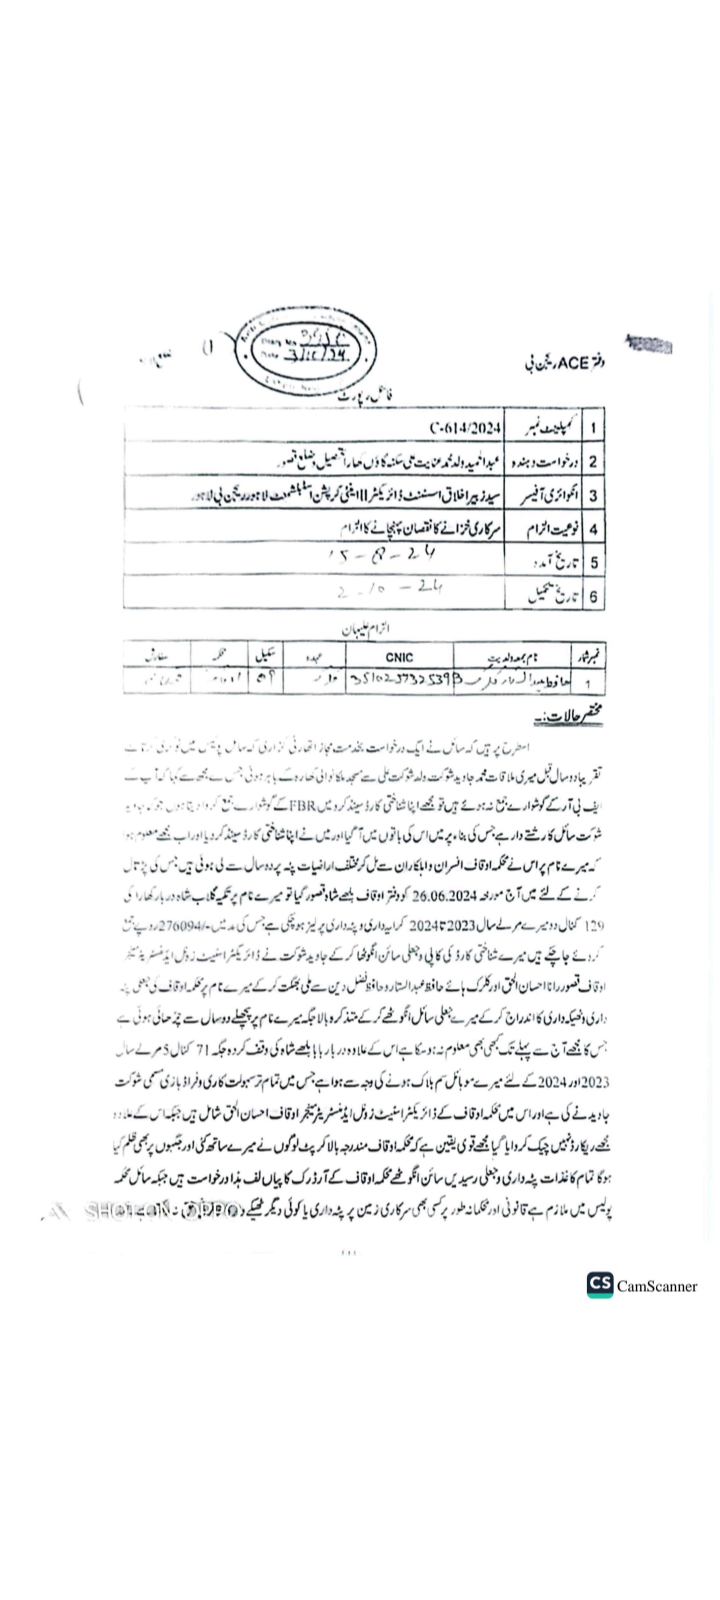 دفتر ACE ریجن بی
3/10/24
فائنل رپورٹ
1 کمپلینٹ نمبر C-614/2024
2 درخواست دہندہ عبدالحمید ولد محمد عنایت جی سکنہ گاؤں کھارا تحصیل و ضلع قصور
3 انکوائری آفیسر سید زبیر اخلاق اسسٹنٹ ڈائریکٹر II اینٹی کرپشن اسٹیبلشمنٹ لاہور ریجن بی لاہور
4 نوعیت الزام سرکاری خزانے کا نقصان پہنچانے کا الزام
5 تاریخ آمدہ 15-8-24
6 تاریخ تکمیل 2-10-24
الزام علیہان
نمبر شمار نام بمعہ ولدیت CNIC عہدہ سکیل محکمہ سفارش
1 حافظ عبدالستار کلرک
مختصر حالات:۔
اسطرح پر ہیں کہ سائل نے ایک درخواست بخدمت مجاز اتھارٹی گزاری کہ سائل پولیس میں نوکری کرتا ہے
تقریبا دو سال قبل میری ملاقات محمد جاوید شوکت ولد شوکت علی سے مسجد ملکانوالی کھارہ کے باہر ہوئی جس نے مجھ سے کہا کہ آپ کے
ایف بی آر کے گوشوارے جمع نہ ہوئے ہیں تو مجھے اپنا شناختی کارڈ سینڈ کرو میں FBR کے گوشوارے جمع کروا دیتا ہوں جو کہ جاوید
شوکت سائل کا رشتے دار ہے جس کی بناء پر میں اس کی باتوں میں آ گیا اور میں نے اپنا شناختی کارڈ سینڈ کر دیا اور اب مجھے معلوم ہوا
کہ میرے نام پر اس نے محکمہ اوقاف افسران و اہلکاران سے مل کر مختلف اراضیات پٹہ پر دو سال سے لی ہوئی ہیں جس کی پڑتال
کرنے کے لئے میں آج مورخہ 26.06.2024 کو دفتر اوقاف بلھے شاہ قصور گیا تو میرے نام پر تکیہ گلاب شاہ دربار کھارا کی
129 کنال دو میرے مرلے سال 2023 تا 2024 کرایہ داری و پٹہ داری پر لیز ہو چکی ہے جس کی مد میں -/276094 روپے جمع
کر دئے جا چکے ہیں میرے شناختی کارڈ کی کاپی و جعلی سائن انگوٹھا کر کے جاوید شوکت نے ڈائریکٹر اسٹیٹ زونل ایڈمنسٹریٹر منیجر
اوقاف قصور رانا احسان الحق اور کلرک ہائے حافظ عبدالستار و حافظ فضل دین سے ملی بھگت کر کے میرے نام پر محکمہ اوقاف کی جعلی پٹہ
داری و ٹھیکہ داری کا اندراج کر کے میرے جعلی سائل انگوٹھے کر کے متذکرہ بالا جگہ میرے نام پر پچھلے دو سال سے چڑھائی ہوئی ہے
جس کا مجھے آج سے پہلے تک کبھی بھی معلوم نہ ہو سکا ہے اس کے علاوہ دربار بابا بلھے شاہ کی وقف کردہ جگہ 71 کنال 5 مرلے سال
2023 اور 2024 کے لئے میرے موبائل سم بلاک ہونے کی وجہ سے ہوا ہے جس میں تمام تر سہولت کاری و فراڈ بازی مسمی شوکت
جاوید نے کی ہے اور اس میں محکمہ اوقاف کے ڈائریکٹر اسٹیٹ زونل ایڈمنسٹریٹر منیجر اوقاف احسان الحق شامل ہیں جبکہ اس کے علاوہ
مجھے ریکارڈ نہیں چیک کروایا گیا مجھے قوی یقین ہے کہ محکمہ اوقاف مندرجہ بالا کرپٹ لوگوں نے میرے ساتھ کئی اور جگہوں پر بھی ظلم کیا
ہوگا تمام کاغذات پٹہ داری و جعلی رسیدیں سائن انگوٹھے محکمہ اوقاف کے آرڈر ک کاپیاں لف ہذا درخواست ہیں جبکہ سائل محکمہ
پولیس میں ملازم ہے قانونی اور محکمانہ طور پر کسی بھی سرکاری زمین پر پٹہ داری یا کوئی دیگر ٹھیکے
SHOT ON OPPO
CS CamScanner